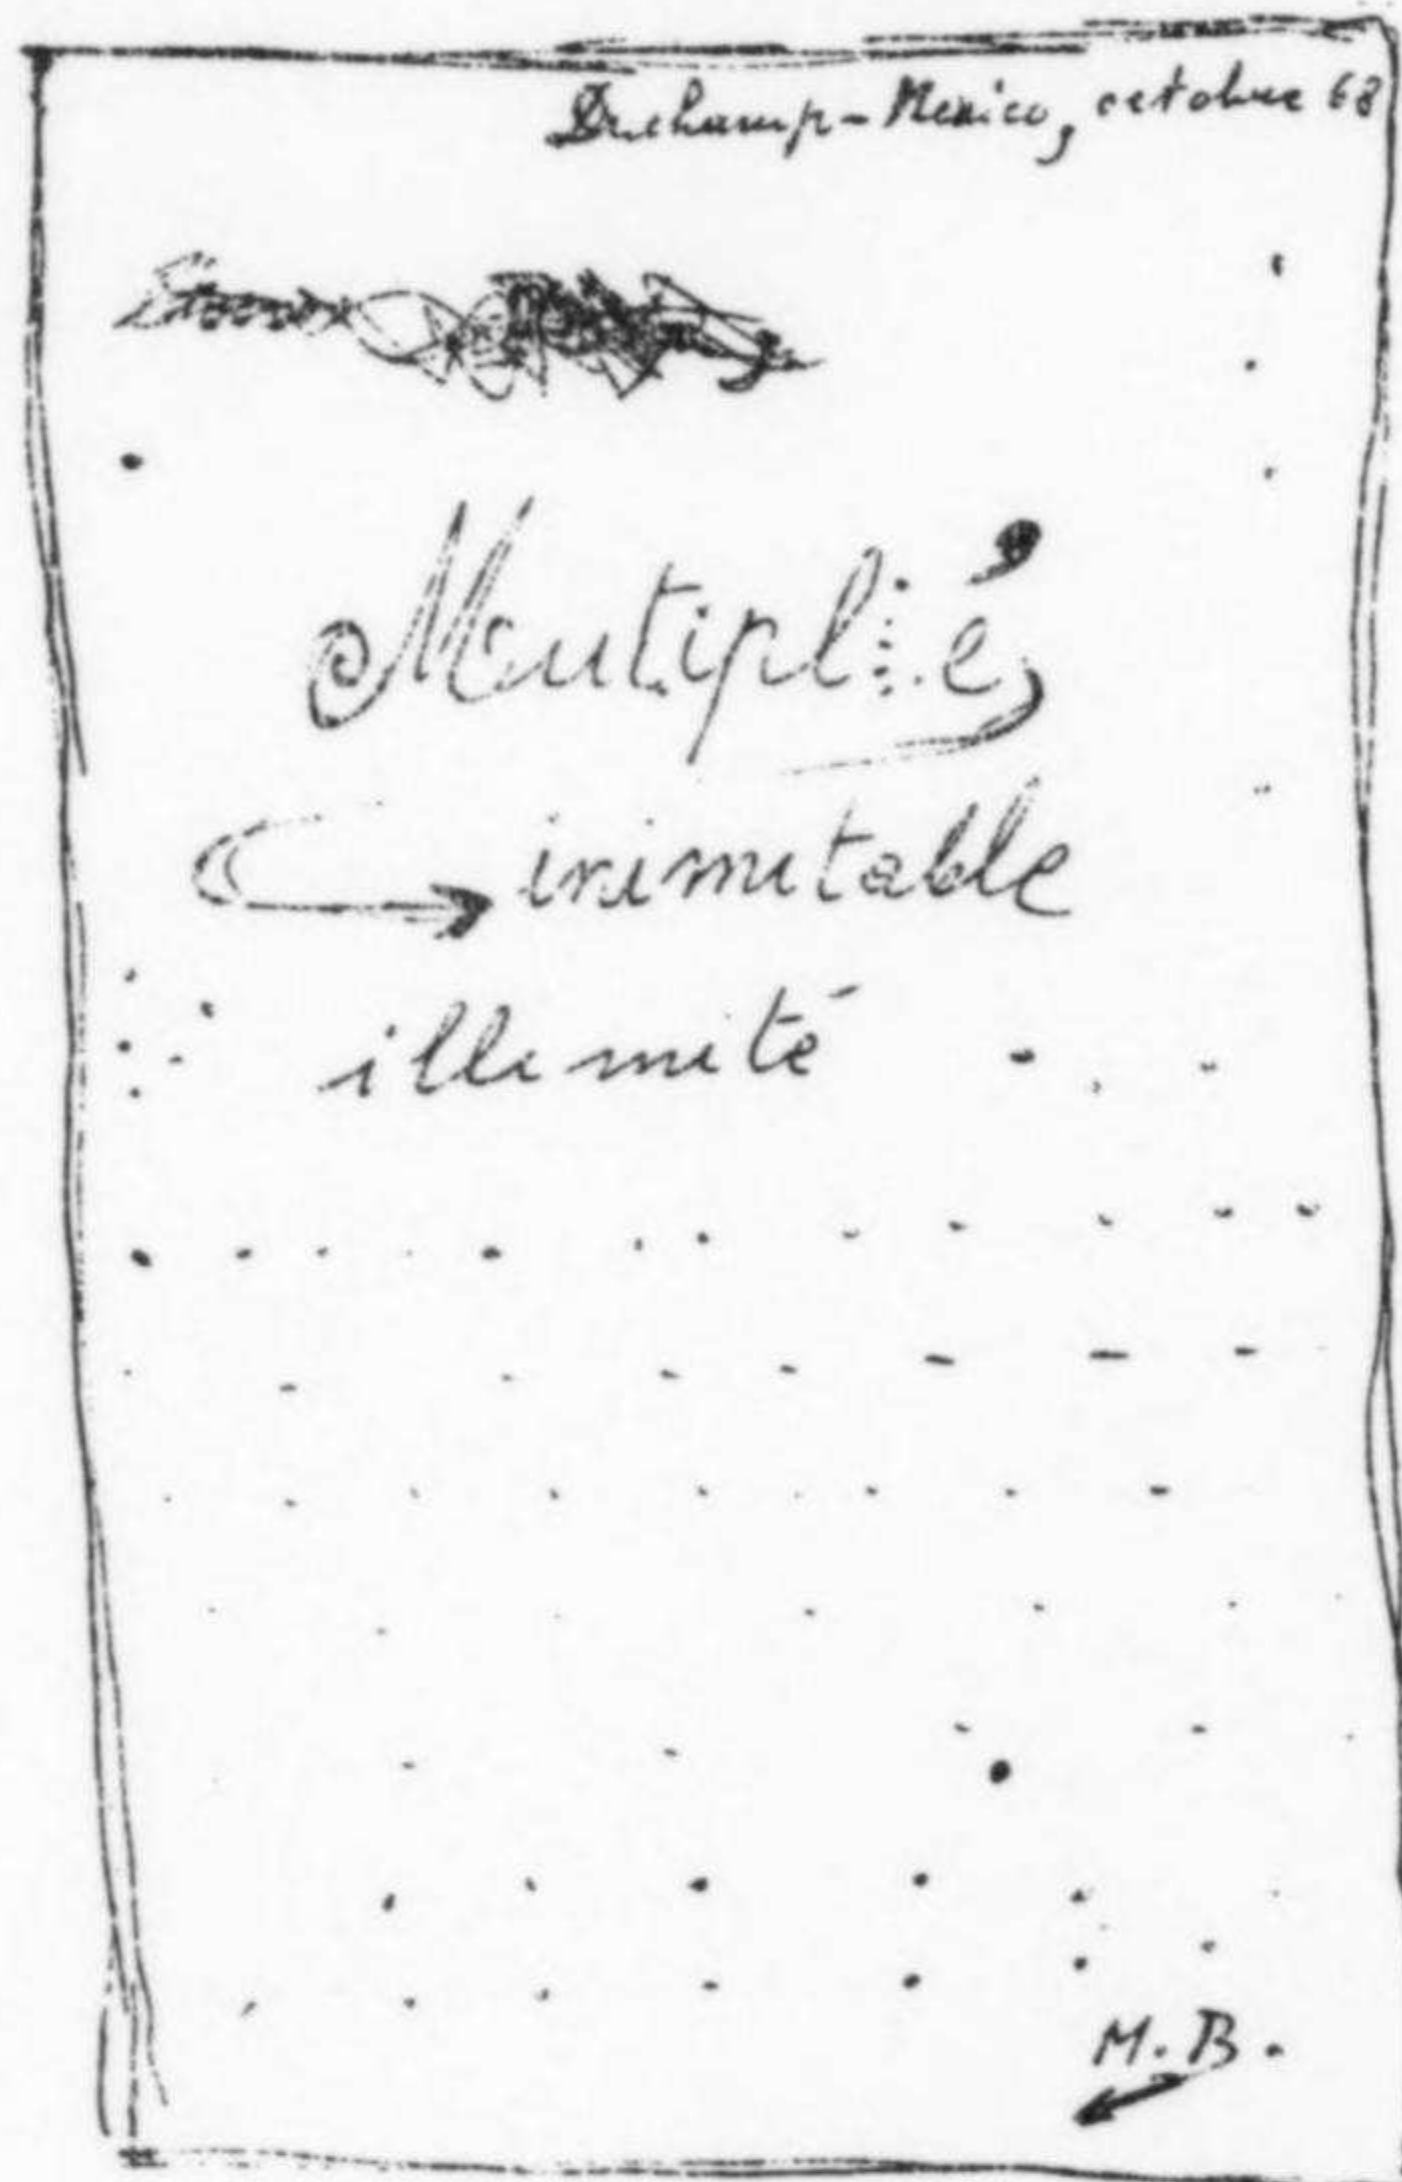 Duchamp-Mexico, octobre 68
Mutiplié,
inimitable
illimité
M.B.